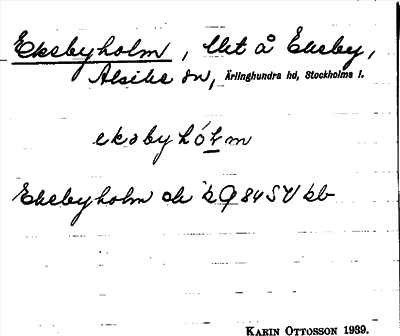 Eksbyholm, Ut å Ekeby,
Alsike sn, Ärlinghundra hd, Stockholms l.
eksbyhólm
Eksbyholm ek 84 SV kb
KARIN OTTOSSON 1939.